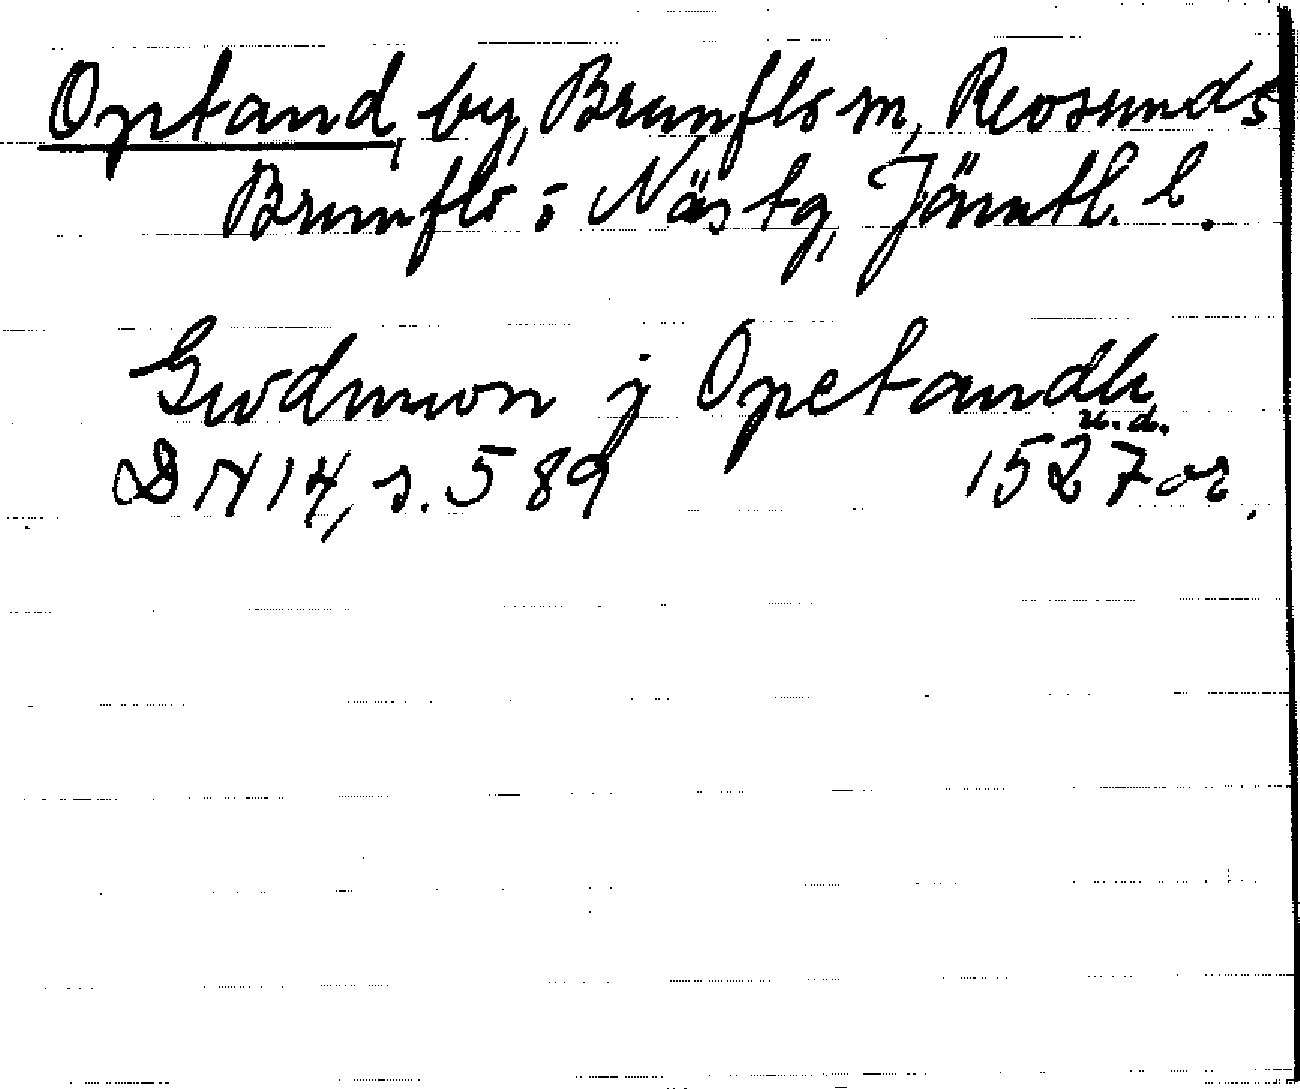 Optand, by, Brunflo sn, Revsunds
Brunflo o Näs tg, Jämtl. l.
Gwdmwn j Opetandh
u.d.
DN 14, s. 589 1527 or.